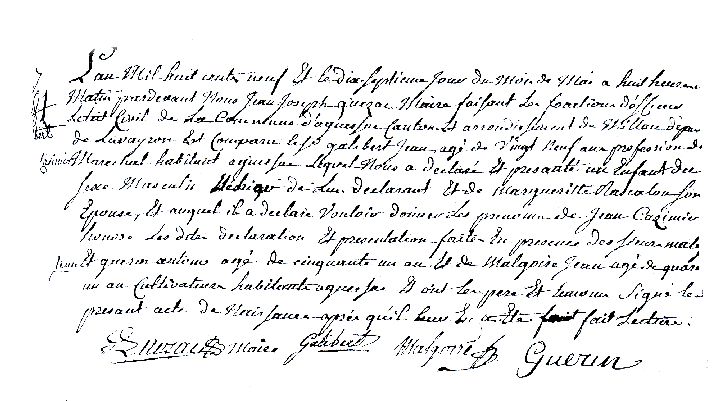 L'an Mil huit cents neuf Et le dix Septieme Jour du Mois de Mai a huit heures
Matin pardevant Nous Jean Joseph Maire faisant les fonctions d'officier
letat Civil de La Commune d'aguessac Canton et arrondissement de
de Laveyron Est Comparu le Sr galibert Jean agé de Vingt Neuf aux profession de
Marechal habitant aguessac Lequel Nous a declaré Et presanté un Enfant du
sexe Masculin de Lui declarant Et de Margueritte Rascalou Son
Epouse, Et auquel il a declaré Vouloir donner Les prenoms de Jean Cazimier
Les dite declaration Et presentation faite En presence des
Et guerin antoine agé de cinquante un an Et de Malgoire Jean agé de quara
un an Cultivateurs habitants aguessac Et ont les pere Et temoins Signé le
presant acte de Naissance après qu'il leur En a Eté fait Lecture.
maire Galibert Malgoire Guerin